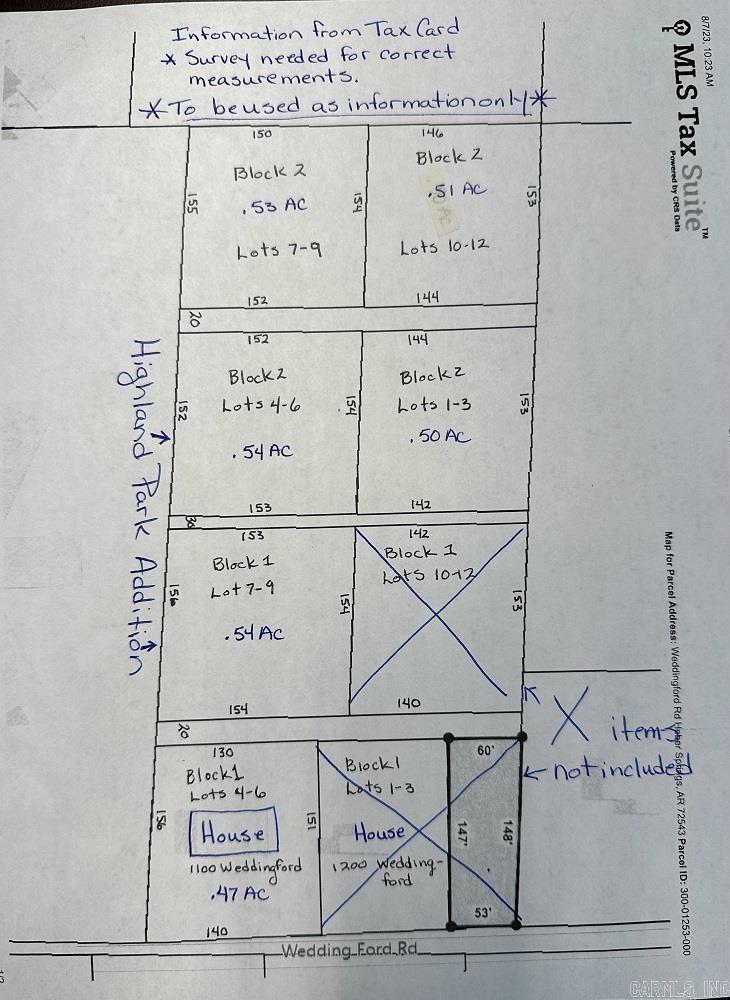 Information from Tax Card
* Survey needed for correct
measurements.
* To be used as information only *
8/7/23, 10:23 AM
MLS Tax Suite™
Powered by CRS Data
150
Block 2
.53 AC
Lots 7-9
155
154
152
146
Block 2
.51 AC
Lots 10-12
153
144
20
152
Block 2
Lots 4-6
.54 AC
152
154
153
144
Block 2
Lots 1-3
.50 AC
153
142
30
153
Block 1
Lot 7-9
.54 AC
156
154
154
142
Block 1
Lots 10-12
153
140
Highland Park Addition
20
130
Block 1
Lots 4-6
House
1100 Weddingford
.47 AC
156
151
140
Block 1
Lots 1-3
House
1200 Wedding-
ford
60'
147'
148'
53'
X items
not included
Wedding Ford Rd
Map for Parcel Address: Weddingford Rd Heber Springs, AR 72543 Parcel ID: 300-01253-000
CARMLS, INC